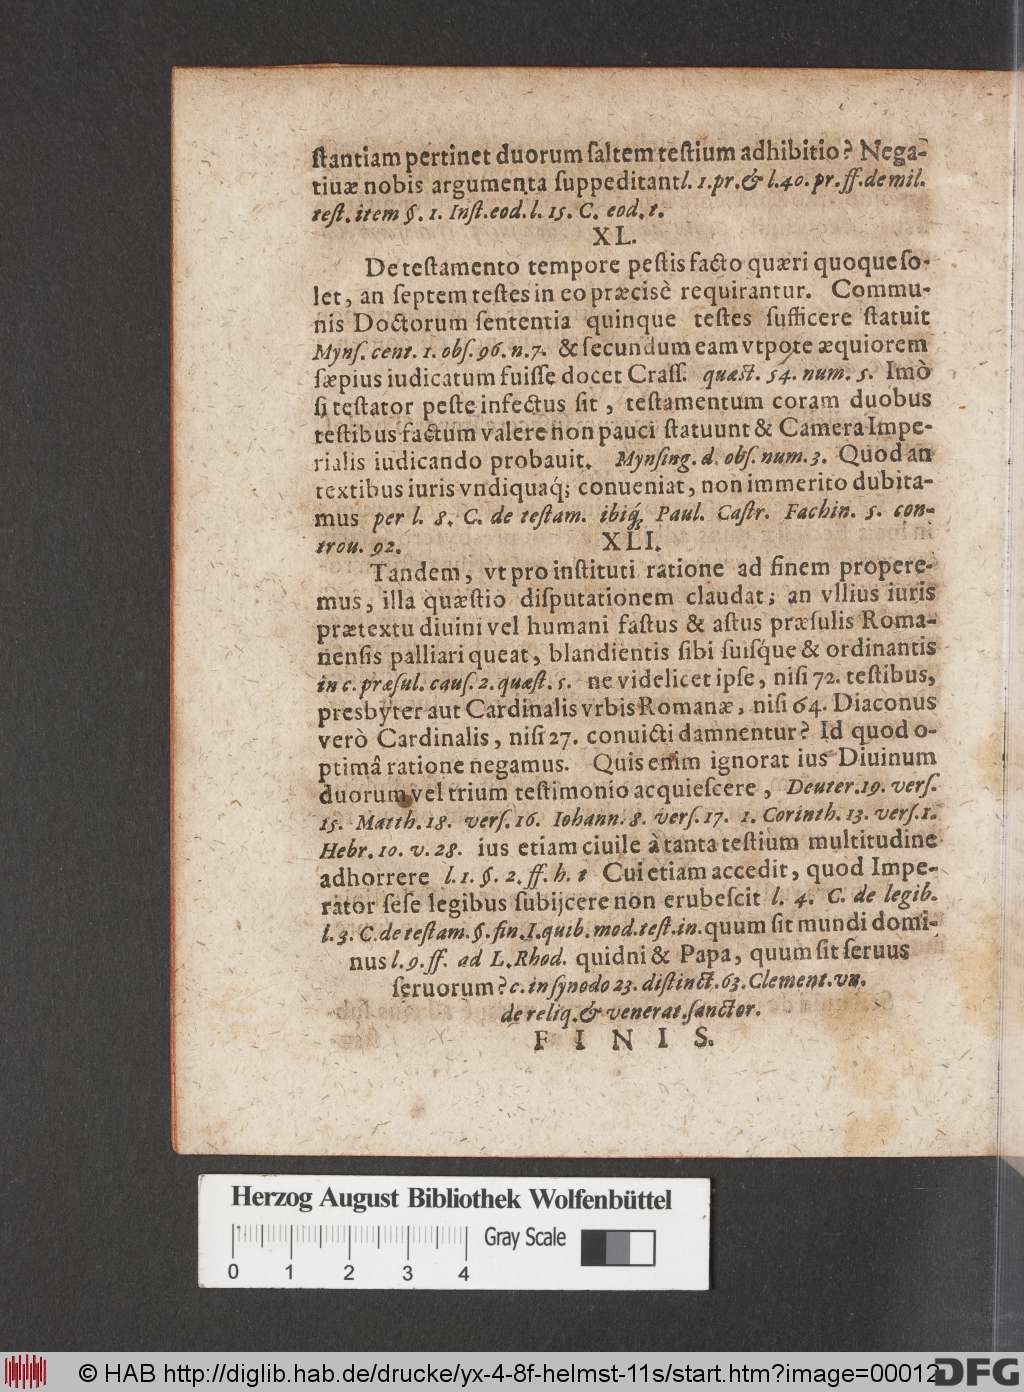 ſtantiam pertinet duorum ſaltem teſtium adhibitio? Nega-
tiuæ nobis argumenta ſuppeditant l. 1. pr. & l. 40. pr. ff. de mil.
teſt. item §. 1. Inſt. eod. l. 15. C. eod. t.
XL.
De teſtamento tempore peſtis facto quæri quoque ſo-
let, an ſeptem teſtes in eo præcisè requirantur. Commu-
nis Doctorum ſententia quinque teſtes ſufficere ſtatuit
Mynſ. cent. 1. obſ. 96. n. 7. & ſecundum eam vtpote æquiorem
ſæpius iudicatum fuiſſe docet Craſſ. quæſt. 54. num. 5. Imò
ſi teſtator peſte infectus ſit, teſtamentum coram duobus
teſtibus factum valere non pauci ſtatuunt & Camera Impe-
rialis iudicando probauit. Mynſing. d. obſ. num. 3. Quod an
textibus iuris vndiquaq́; conueniat, non immerito dubita-
mus per l. 8. C. de teſtam. ibiq́; Paul. Caſtr. Fachin. 5. con-
trou. 92.
XLI.
Tandem, vt pro inſtituti ratione ad finem propere-
mus, illa quæſtio diſputationem claudat; an vllius iuris
prætextu diuini vel humani faſtus & aſtus præſulis Roma-
nenſis palliari queat, blandientis ſibi ſuisq́ue & ordinantis
in c. præſul. cauſ. 2. quæſt. 5. ne videlicet ipſe, niſi 72. teſtibus,
presbyter aut Cardinalis vrbis Romanæ, niſi 64. Diaconus
verò Cardinalis, niſi 27. conuicti damnentur? Id quod o-
ptimâ ratione negamus. Quis enim ignorat ius Diuinum
duorum vel trium teſtimonio acquieſcere, Deuter. 19. verſ.
15. Matth. 18. verſ. 16. Iohann. 8. verſ. 17. 1. Corinth. 13. verſ. 1.
Hebr. 10. v. 28. ius etiam ciuile à tanta teſtium multitudine
adhorrere l. 1. §. 2. ff. h. t Cui etiam accedit, quod Impe-
rator ſeſe legibus ſubijcere non erubeſcit l. 4. C. de legib.
l. 3. C. de teſtam. §. fin. I. quib. mod. teſt. in. quum ſit mundi domi-
nus l. 9. ff. ad L. Rhod. quidni & Papa, quum ſit ſeruus
ſeruorum? c. in ſynodo 23. diſtinct. 63. Clement. vn.
de reliq. & venerat. ſanctor.
FINIS.
Herzog August Bibliothek Wolfenbüttel
Gray Scale
0 1 2 3 4
© HAB http://diglib.hab.de/drucke/yx-4-8f-helmst-11s/start.htm?image=00012
DFG